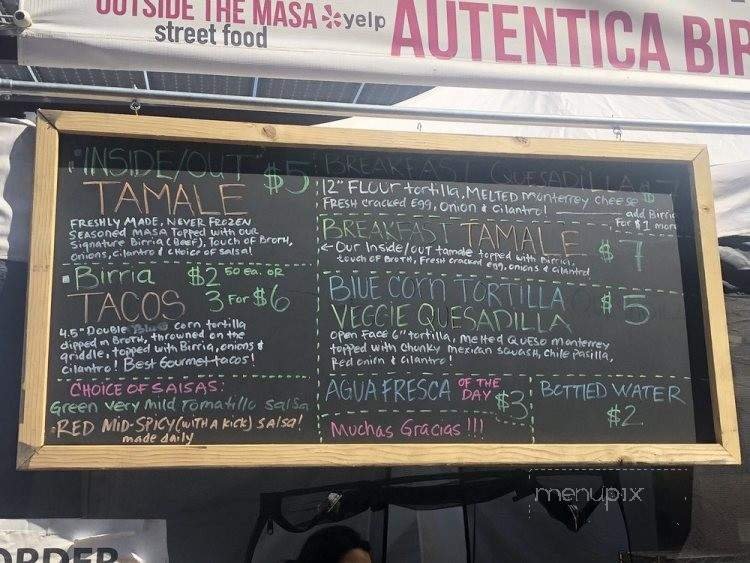 OUTSIDE THE MASA yelp
street food
AUTENTICA BIR
"INSIDE/OUT" $5
TAMALE
FRESHLY MADE, NEVER FROZEN
Seasoned MASA Topped with our
Signature Birria (Beef), Touch of Broth,
onions, cilantro & choice of salsa!
Birria $2 50 ea. OR
TACOS 3 For $6
4.5" Double Blue corn tortilla
dipped in Broth, throwned on the
griddle, topped with Birria, onions &
cilantro! Best Gourmet tacos!
CHOICE OF SALSAS:
Green very Mild Tomatillo Salsa
RED MID-SPICY (WITH A KICK) Salsa!
made daily
BREAKFAST QUESADILLA $7
12" FLOUR tortilla, MELTED Monterrey cheese
FRESH cracked Egg, Onion & Cilantro!
add Birria
For $1 more
BREAKFAST TAMALE $7
← Our Inside/OUT tamale topped with Birria,
touch of Broth, Fresh cracked egg, onions & cilantro
BLUE CORN TORTILLA $5
VEGGIE QUESADILLA
Open Face 6" tortilla, Melted QUESO Monterrey
topped with chunky Mexican squash, Chile Pasilla,
Red onion & cilantro!
AGUA FRESCA OF THE DAY $3
BOTTLED WATER
$2
Muchas Gracias!!!
menupix
ORDER